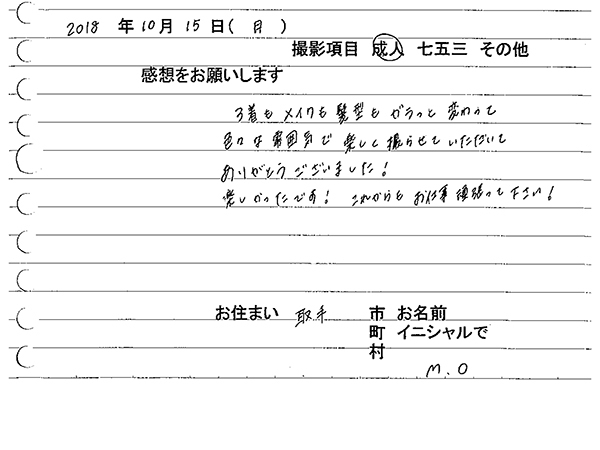 2018 年 10 月 15 日( 月 )
撮影項目 成人 七五三 その他
感想をお願いします
3着も メイクも 髪型も ガラっと 変わって
色々な 雰囲気で 楽しく 撮らせていただいて
ありがとうございました!
楽しかったです! これからも お仕事 頑張って下さい!
お住まい 取手 市 お名前
町 イニシャルで
村
M.O